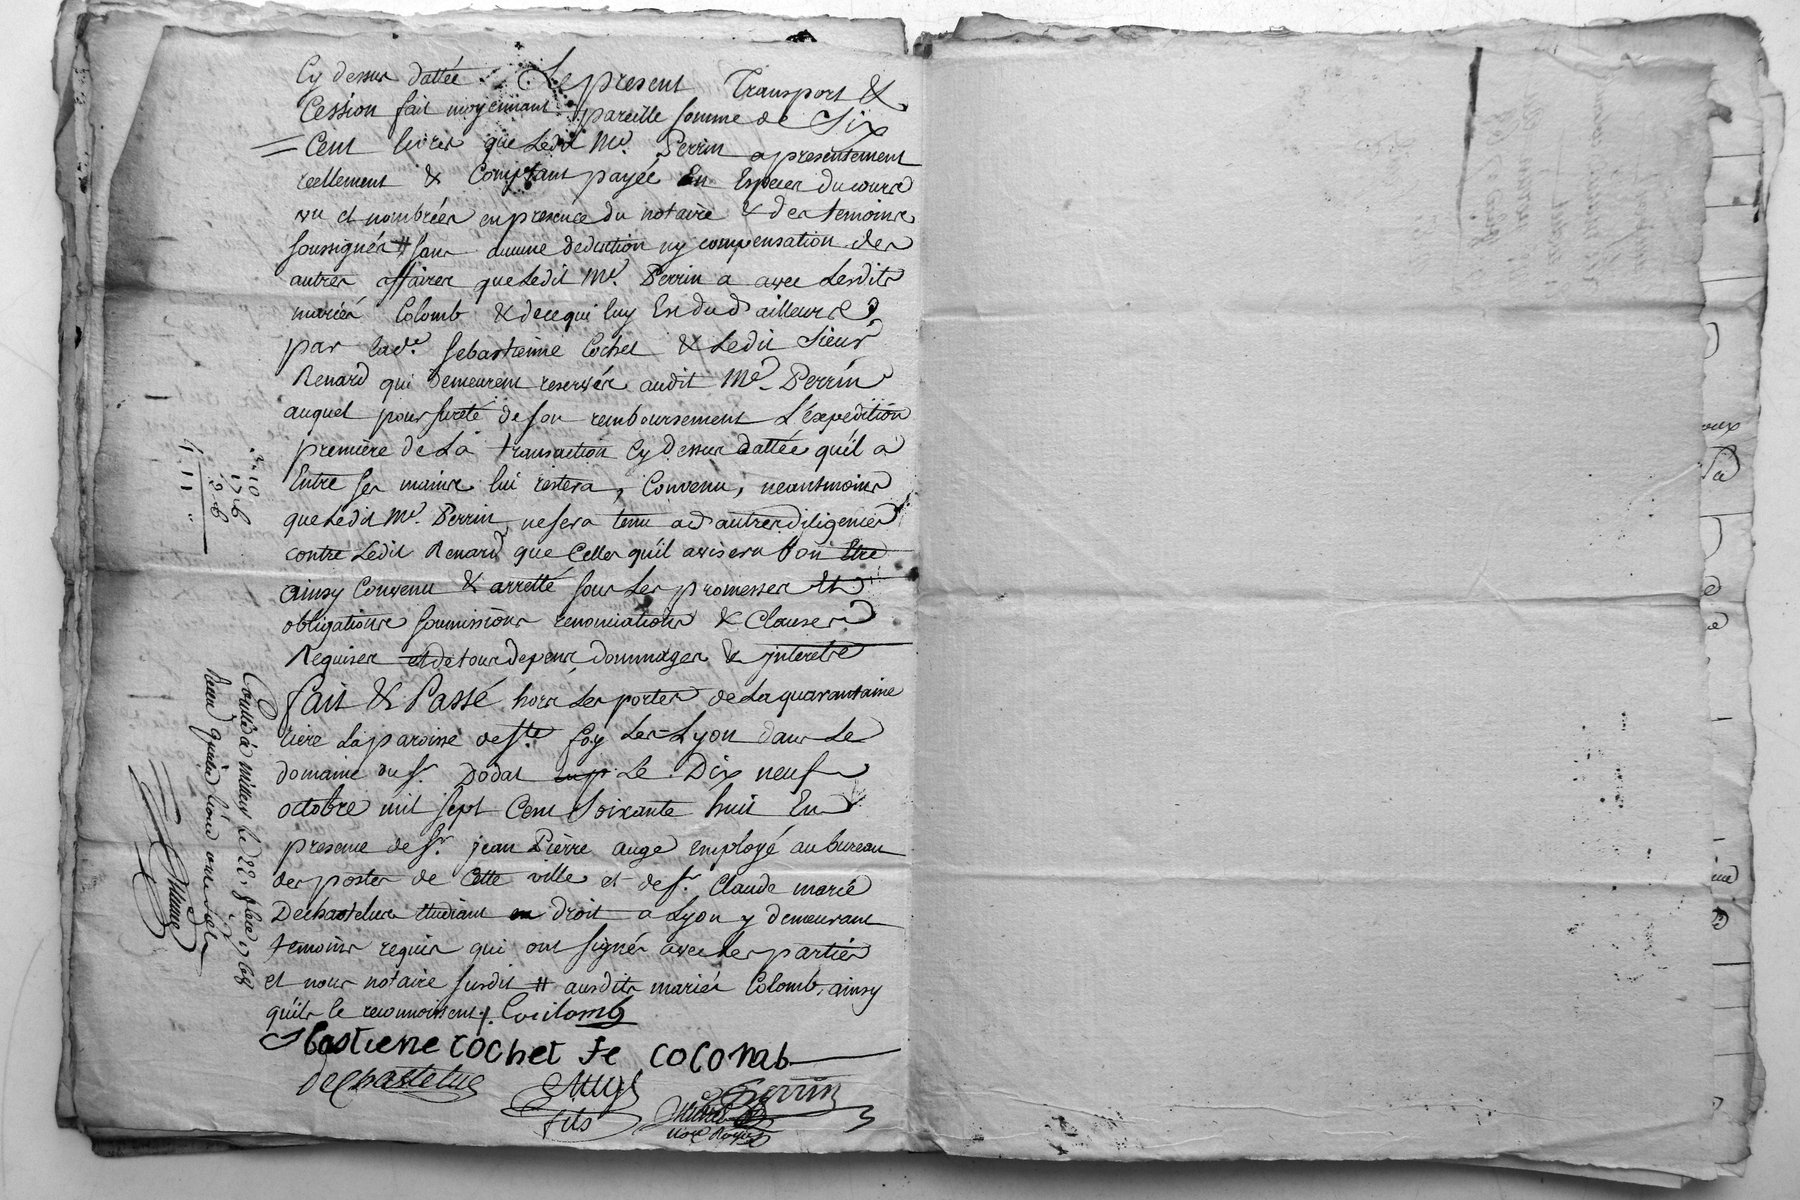 Cy dessus dattée. Le present Transport &
Cession fait moyennant pareille somme de Six
Cent livres que Ledit Me. Perrin a presentement
réellement & Comptant payée En Especes du cours
vu et nombrées en presence du notaire & des temoins
soussignés # sans aucune deduction ny compensation des
autres affaires que Ledit Me. Perrin a avec Lesdits
mariés Colomb & de ce qui luy Est du d'ailleurs
par lade. Sebastienne Cochet & Ledit Sieur
Renard qui Demeurent reservés audit Me. Perrin
auquel pour sureté de son remboursement L'éxpedition
première de La transaction Cy dessus dattée qu'il a
Entre ses mains lui restera, Convenu, neantmoins
que Ledit Me. Perrin ne sera tenu a d'autres diligences
contre Ledit Renard que Celles qu'il avisera bon Etre
ainsy Convenu & arretté sous Les promesses Et
obligations soumissions renonciations & Clauses
Requises et de tous depens, dommages & interets
fait & Passé hors Les portes de La quarantaine
riere La paroisse de Ste. foy Les-Lyon dans Le
domaine du Sr. Dodat Le Dix neuf
octobre mil sept Cent Soixante huit En
presence de Sr. jean Pierre auge Employé au bureau
des postes de Cette ville et de Sr. Claude marie
Dechastelus Etudiant en droit a Lyon y demeurant
temoins requis qui ont signé avec Les parties
et nous notaire susdit # ausdits mariés Colomb, ainsy
qu'ils le reconnoissent /. Coulomb
sbastiene cochet fe colomb
Dechastelus Auge Perrin
fils
not. Royal
2.10
17.6
3.6
1.11
Contlé à Lyon Le 22. 8bre 1768
Reçu